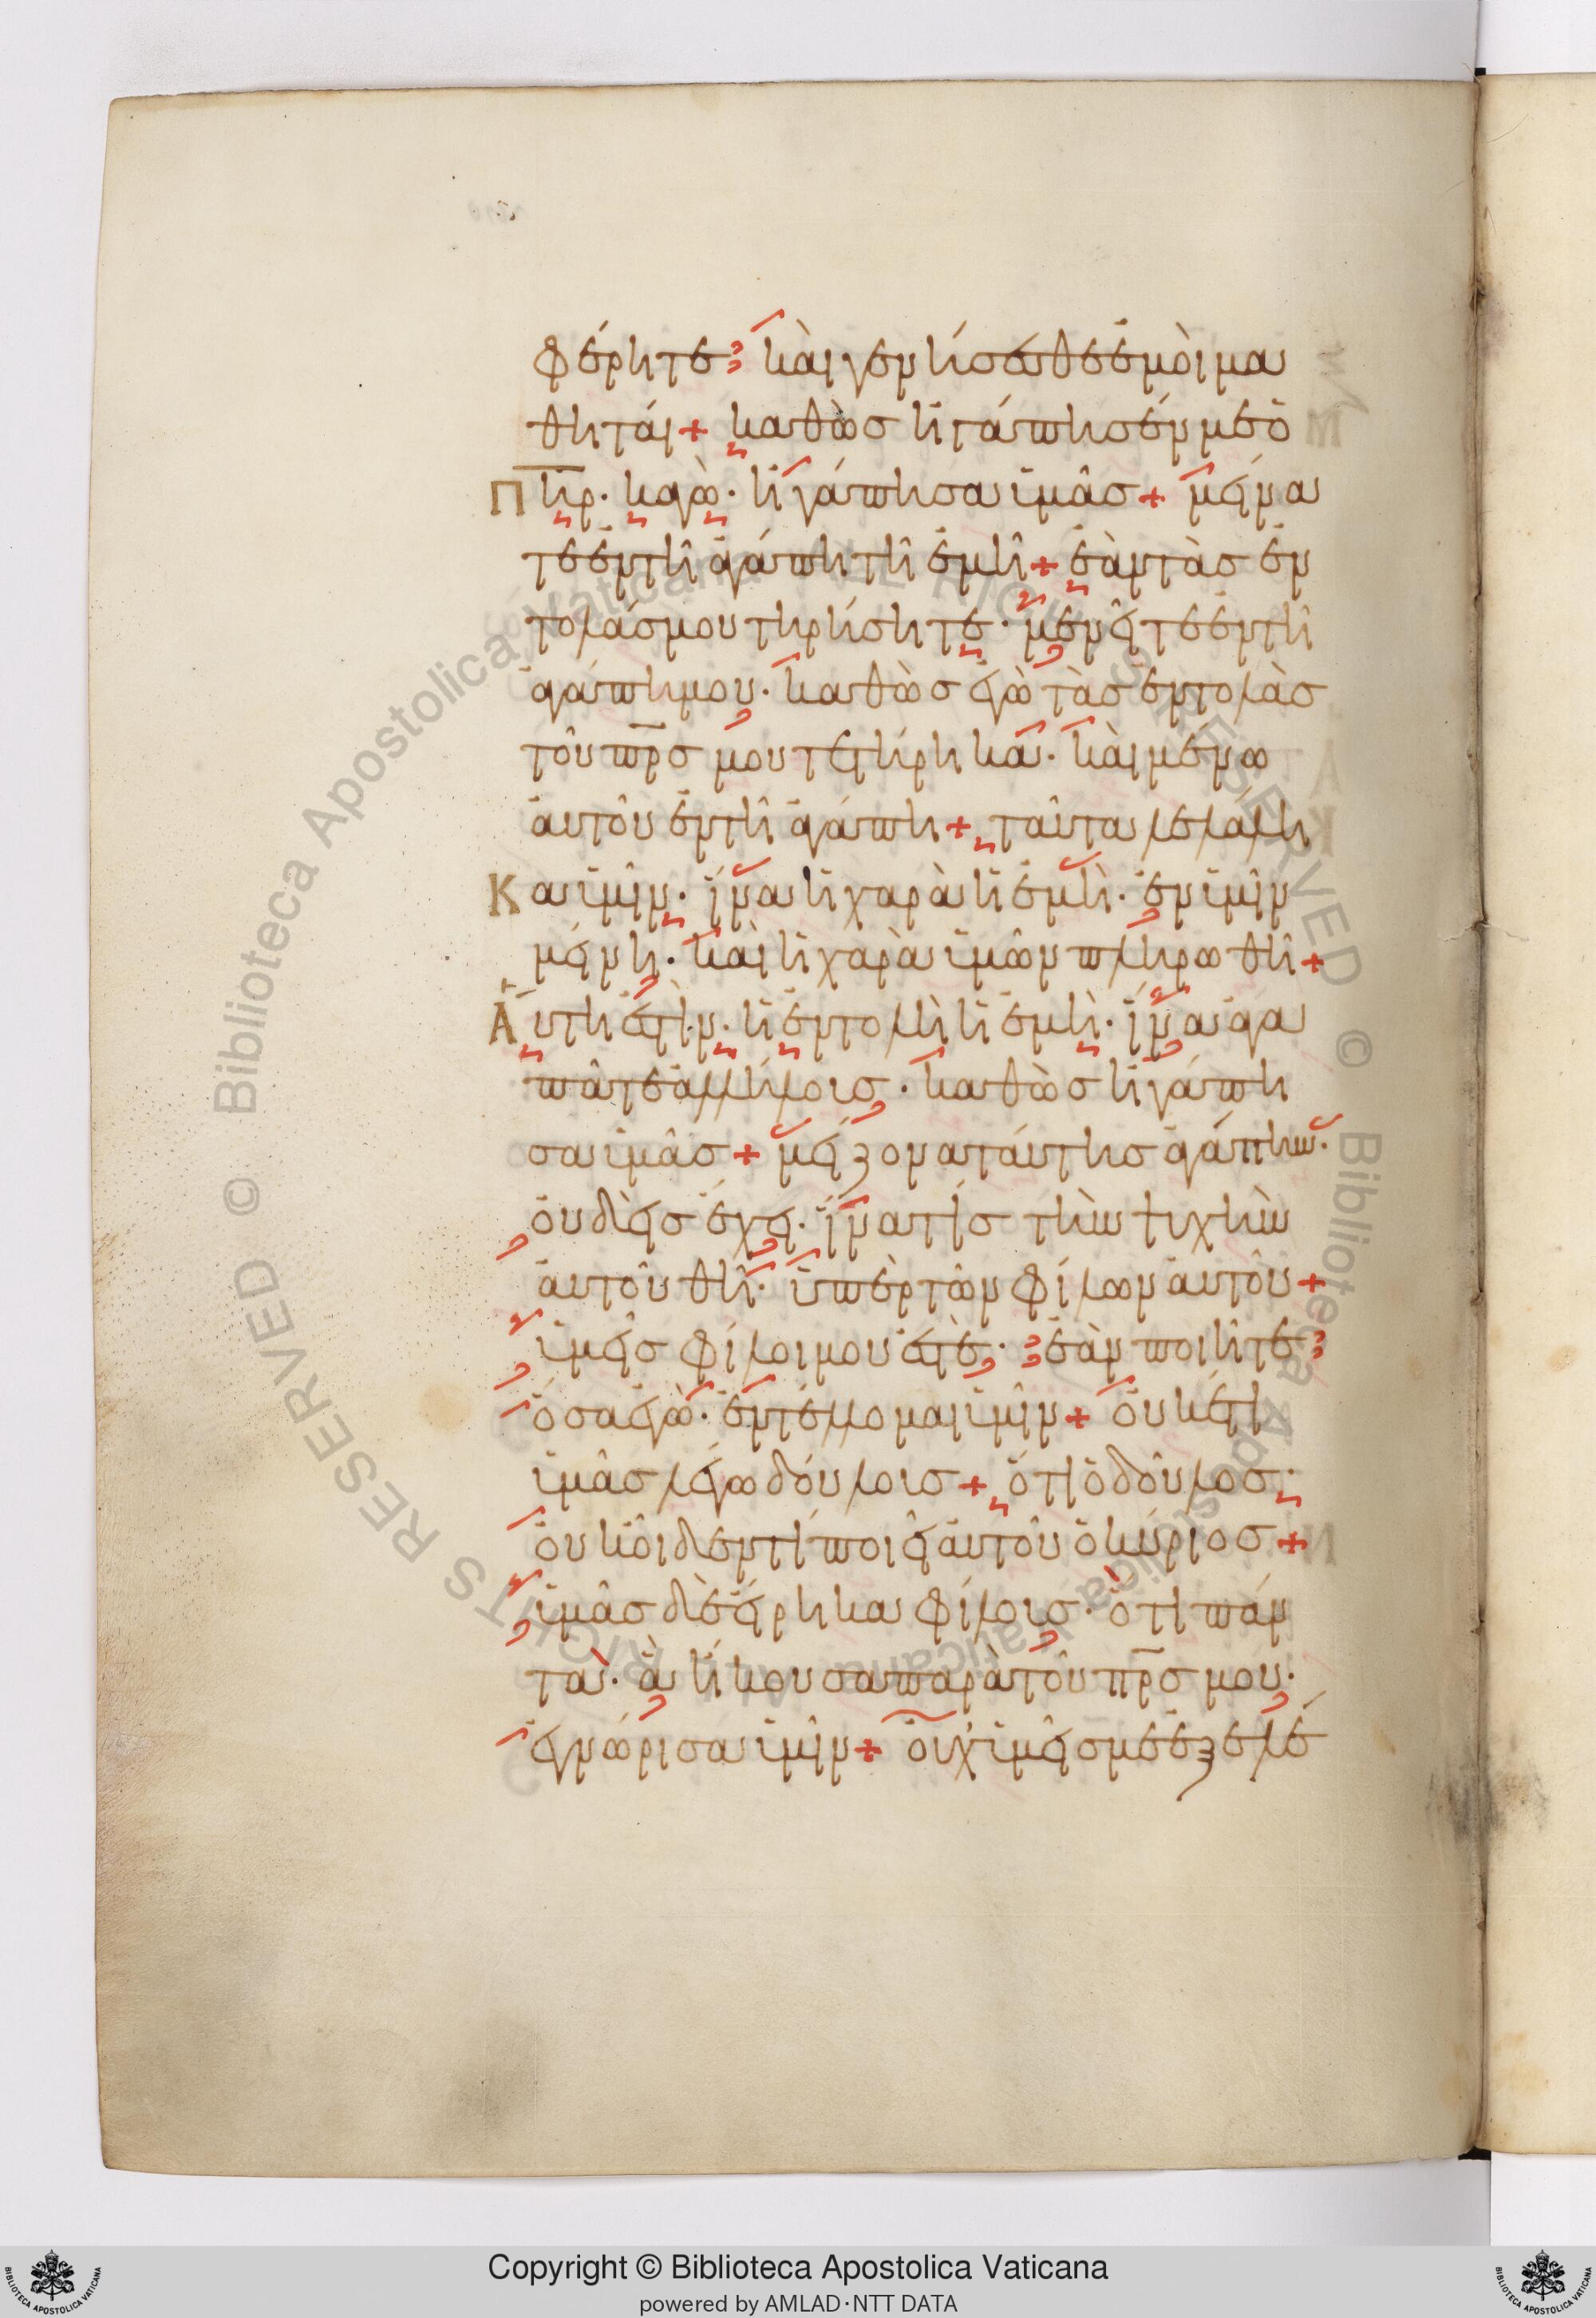 φέρητε· και γενήσεσθε ἐμοὶ μα
θηταί + καθὼς ἠγάπησέν με ὁ
πηρ· καγὼ· ἠγάπησα ὑμᾶς + μείνα
τε ἐν τῆ ἀγάπη τῆ ἐμῆ + ἐὰν τὰς ἐν
τολάς μου τηρήσητε· μενεῖτε ἐν τῆ
ἀγάπη μου· καθὼς ἐγὼ τὰς ἐντολὰς
τοῦ πρς μου τετήρηκα· καὶ μένω
αὐτοῦ ἐν τῆ ἀγάπη + ταῦτα λελάλη
κα ὑμῖν· ἵνα ἡ χαρὰ ἡ ἐμὴ· ἐν ὑμῖν
μείνη· καὶ ἡ χαρὰ ὑμῶν πληρωθῆ +
Αὕτη ἐστὶν· ἡ ἐντολὴ ἡ ἐμὴ· ἵνα ἀγα
πᾶτε ἀλλήλοις· καθὼς ἠγάπη
σα ὑμᾶς + μείζονα ταύτης ἀγάπην·
οὐδεὶς ἔχει· ἵνα τίς τὴν ψυχὴν
αὐτοῦ θῆ· ὑπὲρ τῶν φίλων αὐτοῦ +
ὑμεῖς φίλοι μου ἐστὲ· ἐὰν ποιῆτε
ὅσα ἐγὼ· ἐντέλλομαι ὑμῖν + οὐκέτι
ὑμᾶς λέγω δούλους + ὅτι ὁ δοῦλος·
οὐκ οἶδεν τί ποιεῖ αὐτοῦ ὁ κύριος +
ὑμᾶς δὲ εἴρηκα φίλους· ὅτι πάν
τα· ἃ ἤκουσα παρὰ τοῦ πρς μου·
ἐγνώρισα ὑμῖν + οὐχ ὑμεῖς με ἐξελέ
Copyright © Biblioteca Apostolica Vaticana
powered by AMLAD·NTT DATA